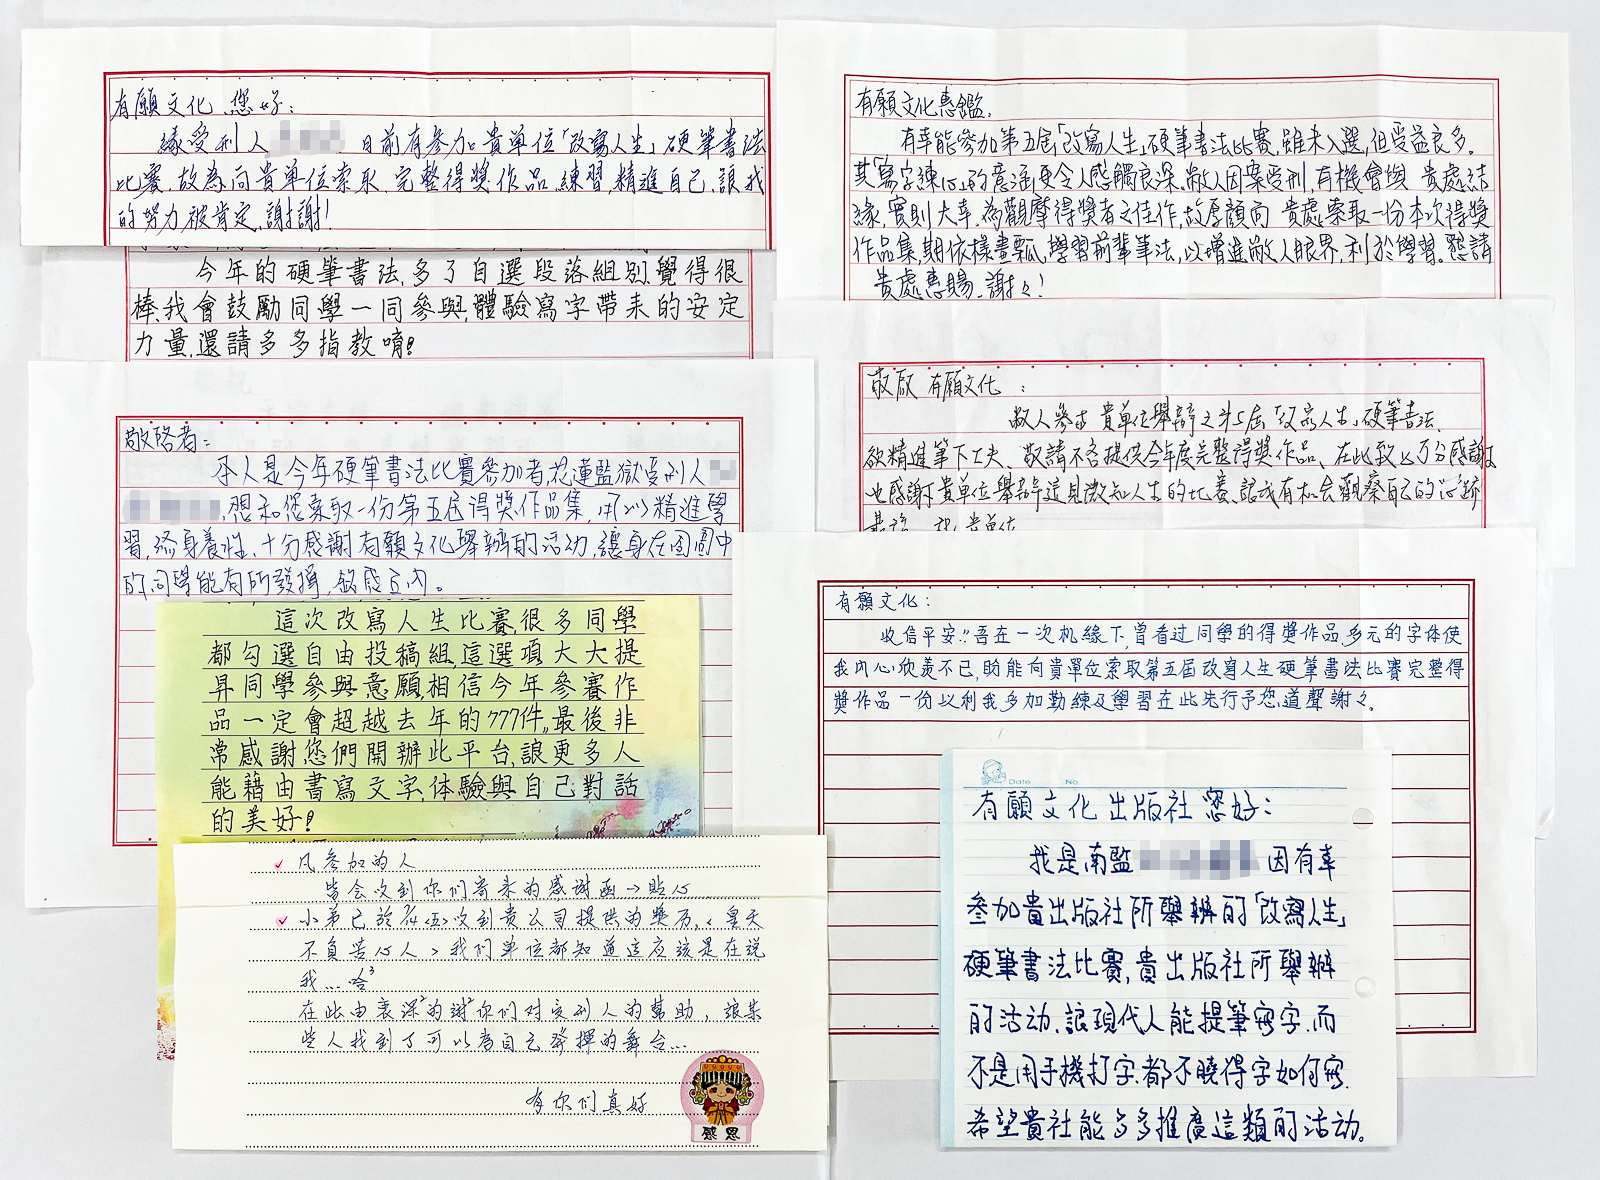 有願文化 您好:
緣受刑人 日前有參加貴單位「改寫人生」硬筆書法
比賽,故為向貴單位索取、完整得獎作品,練習精進自己,讓我
的努力被肯定,謝謝!
今年的硬筆書法,多了自選段落組別,覺得很
棒,我會鼓勵同學一同參與,體驗寫字帶來的安定
力量,還請多多指教唷!
敬啓者:
本人是今年硬筆書法比賽參加者,花蓮監獄受刑人
,想和您索取一份第五屆得獎作品集,用以精進學
習,修身養性、十分感謝有願文化舉辦的活動,讓身在囹圄中
的同學能有所發揮,銘感五內。
這次改寫人生比賽,很多同學
都勾選自由投稿組,這選項大大提
昇同學參與意願,相信今年參賽作
品一定會超越去年的777件,最後非
常感謝您們開辦此平台,讓更多人
能藉由書寫文字,体驗與自己對話
的美好!
凡參加的人
皆会收到你們寄來的感謝函→貼心
小弟已於 收到貴公司提供的獎历,<皇天
不負苦心人>我們單位都知道這应該是在說
我...哈³
在此由衷深²的謝²你們对受刑人的幫助,讓某
些人找到了可以为自己發揮的舞台...
有你們真好
感恩
有願文化惠鑑,
有幸能參加第五屆「改寫人生」硬筆書法比賽,雖未入選,但受益良多。
其「寫字練心」的意涵更令人感觸良深,敝人因案受刑,有機會與 貴處結
緣,實則大幸,為觀摩得獎者之佳作,故厚顏向 貴處索取一份本次得獎
作品集,期依樣畫瓢,學習前輩筆法,以增進敝人眼界,利於學習。懇請
貴處惠賜,謝々!
敬啟 有願文化 :
敝人參加 貴單位舉辦之第5屆「改寫人生」硬筆書法、
欲精進筆下工夫、敬請不吝提供今年度完整得獎作品、在此致上万分感謝
也感謝貴單位舉辦這 人生的比賽、讓我有机会觀察自己的心跡
有願文化:
收信平安!!吾在一次机緣下,曾看过同學的得獎作品,多元的字体使
我內心欣羨不已,盼能向貴單位索取第五屆改寫人生硬筆書法比賽完整得
獎作品一份以利我多加勤練及學習在此先行予您道聲謝々。
Date No
有願文化出版社您好:
我是南監 因有幸
參加貴出版社所舉辦的「改寫人生」
硬筆書法比賽,貴出版社所舉辦
的活动,讓現代人能提筆寫字,而
不是用手機打字,都不曉得字如何寫.
希望貴社能多多推廣這類的活动。